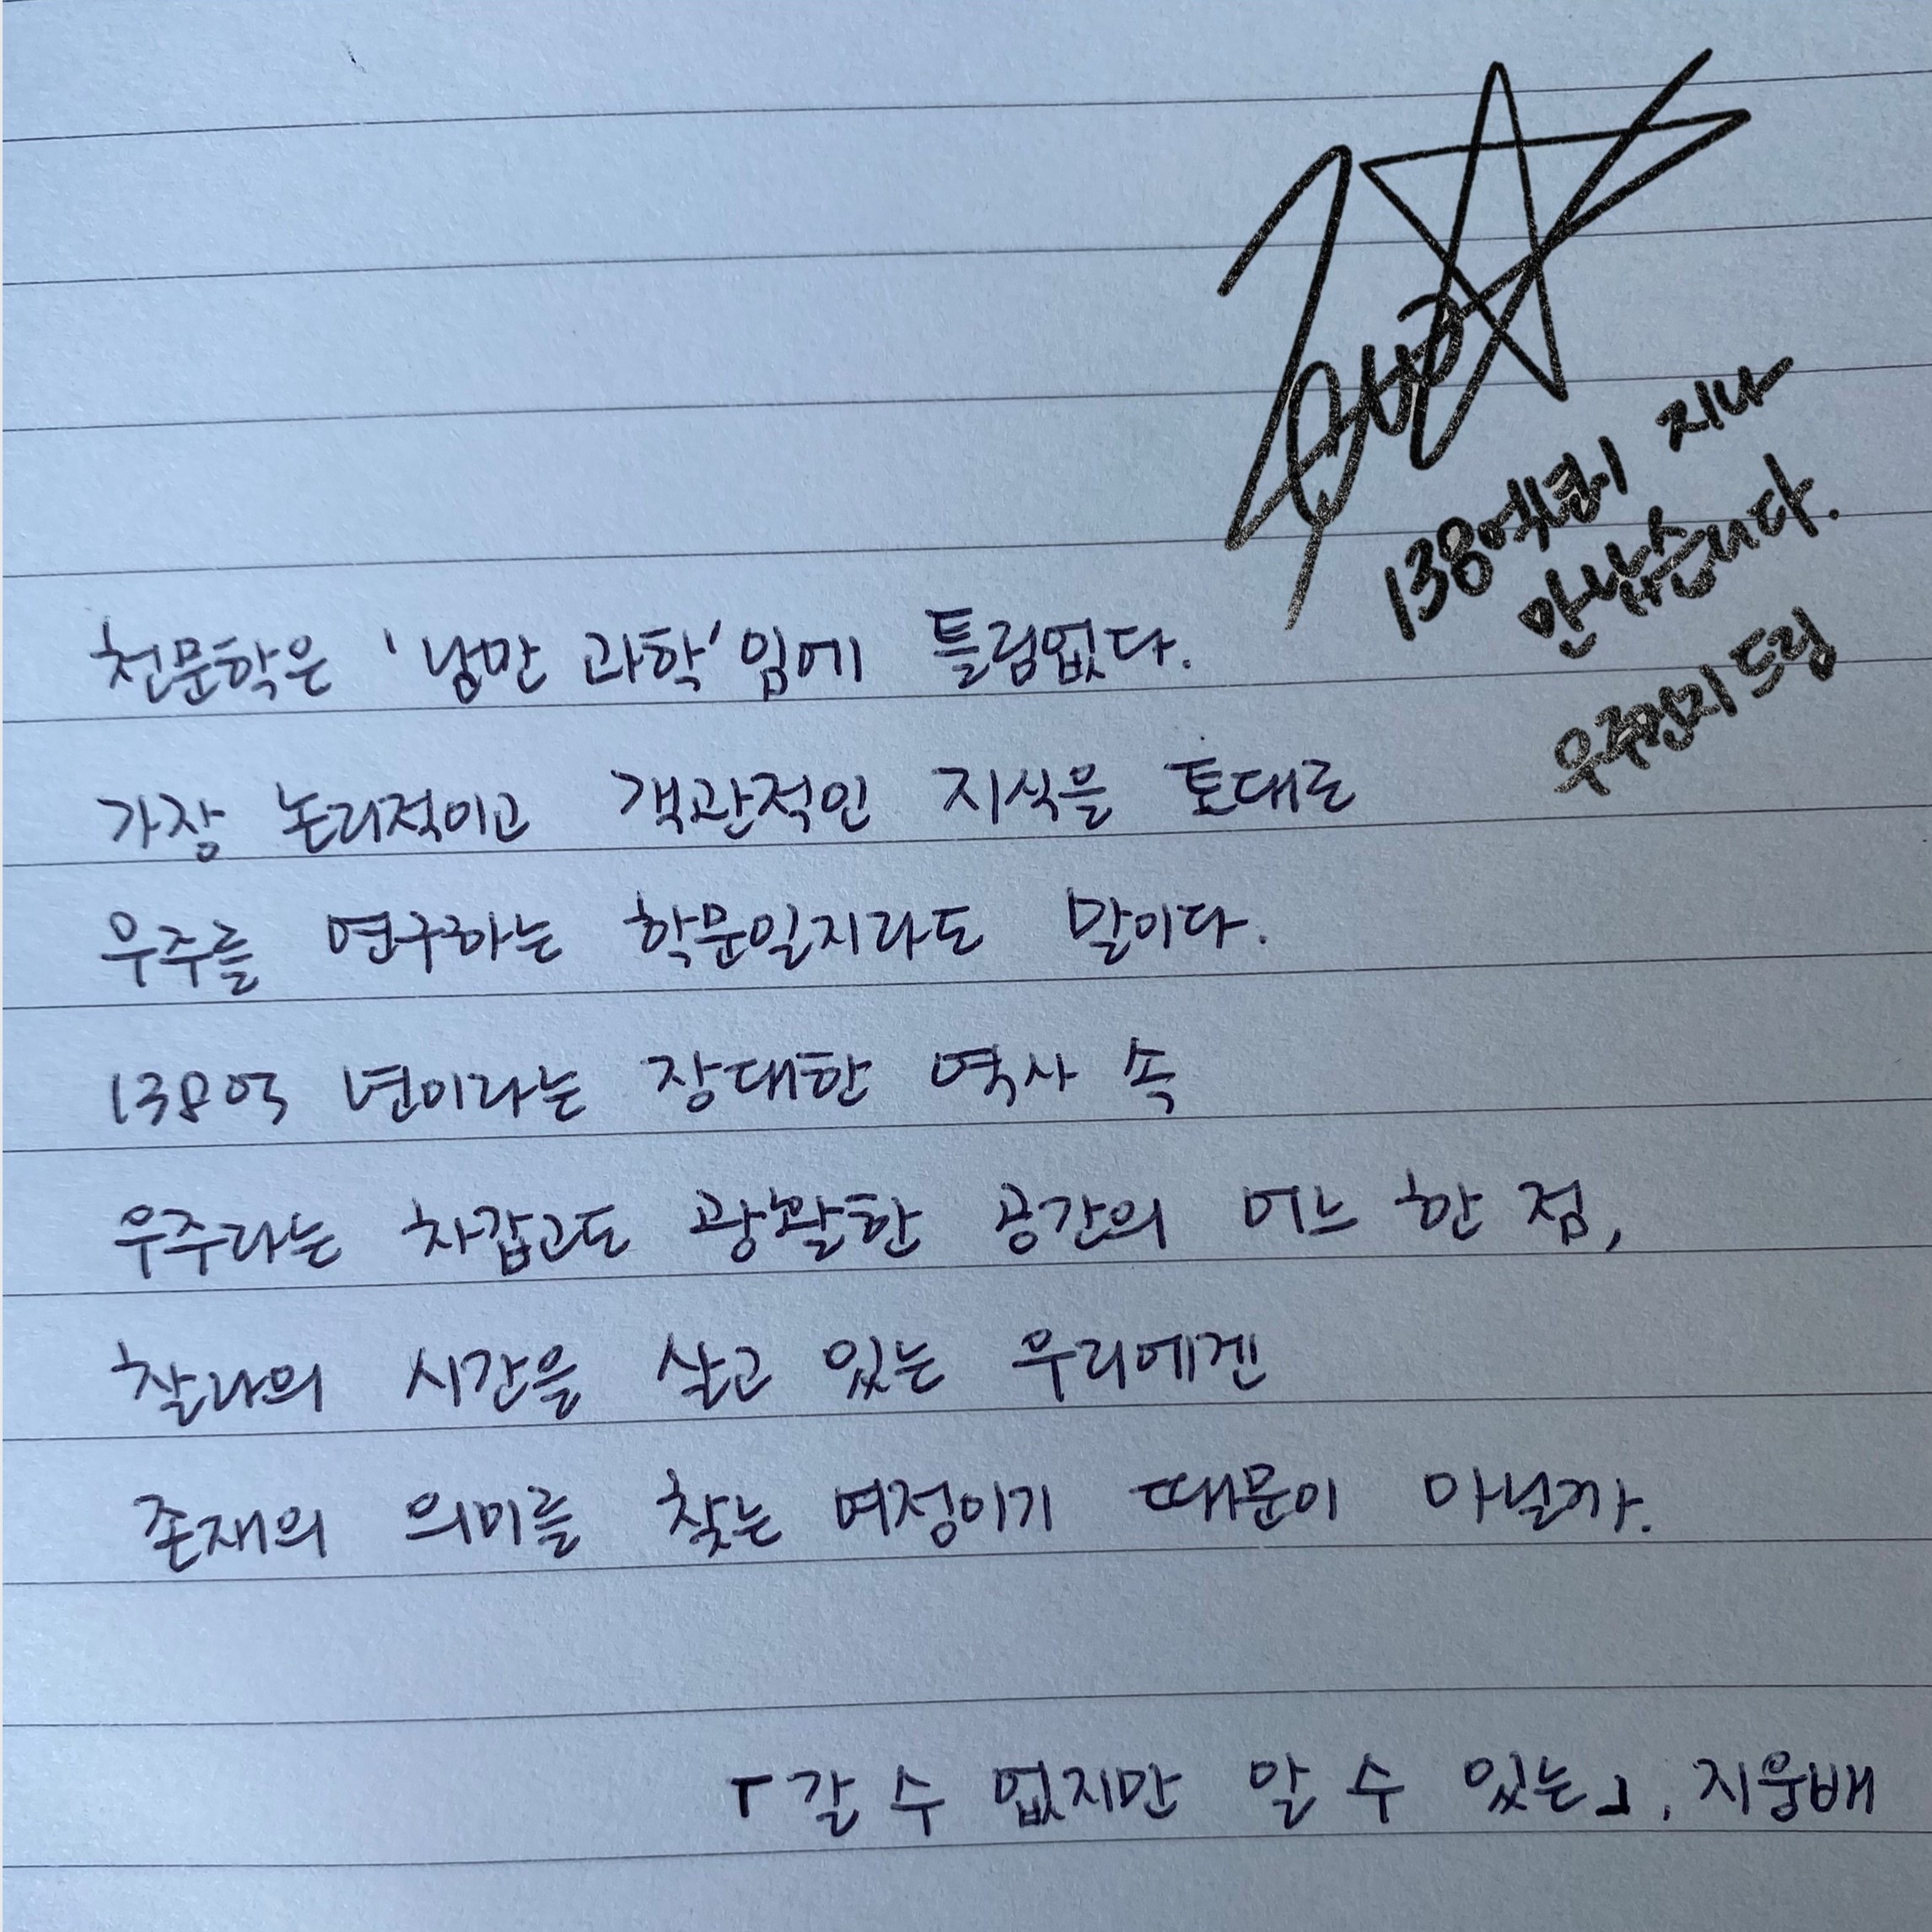 138억년이 지나
안 났습니다.
우주먼지 드림
천문학은 '낭만 과학'임에 틀림없다.
가장 논리적이고 객관적인 지식을 토대로
우주를 연구하는 학문일지라도 말이다.
138억 년이라는 장대한 역사 속
우주라는 차갑고도 광활한 공간의 어느 한 점,
찰나의 시간을 살고 있는 우리에겐
존재의 의미를 찾는 여정이기 때문이 아닐까.
「갈 수 없지만 알 수 있는」, 지웅배